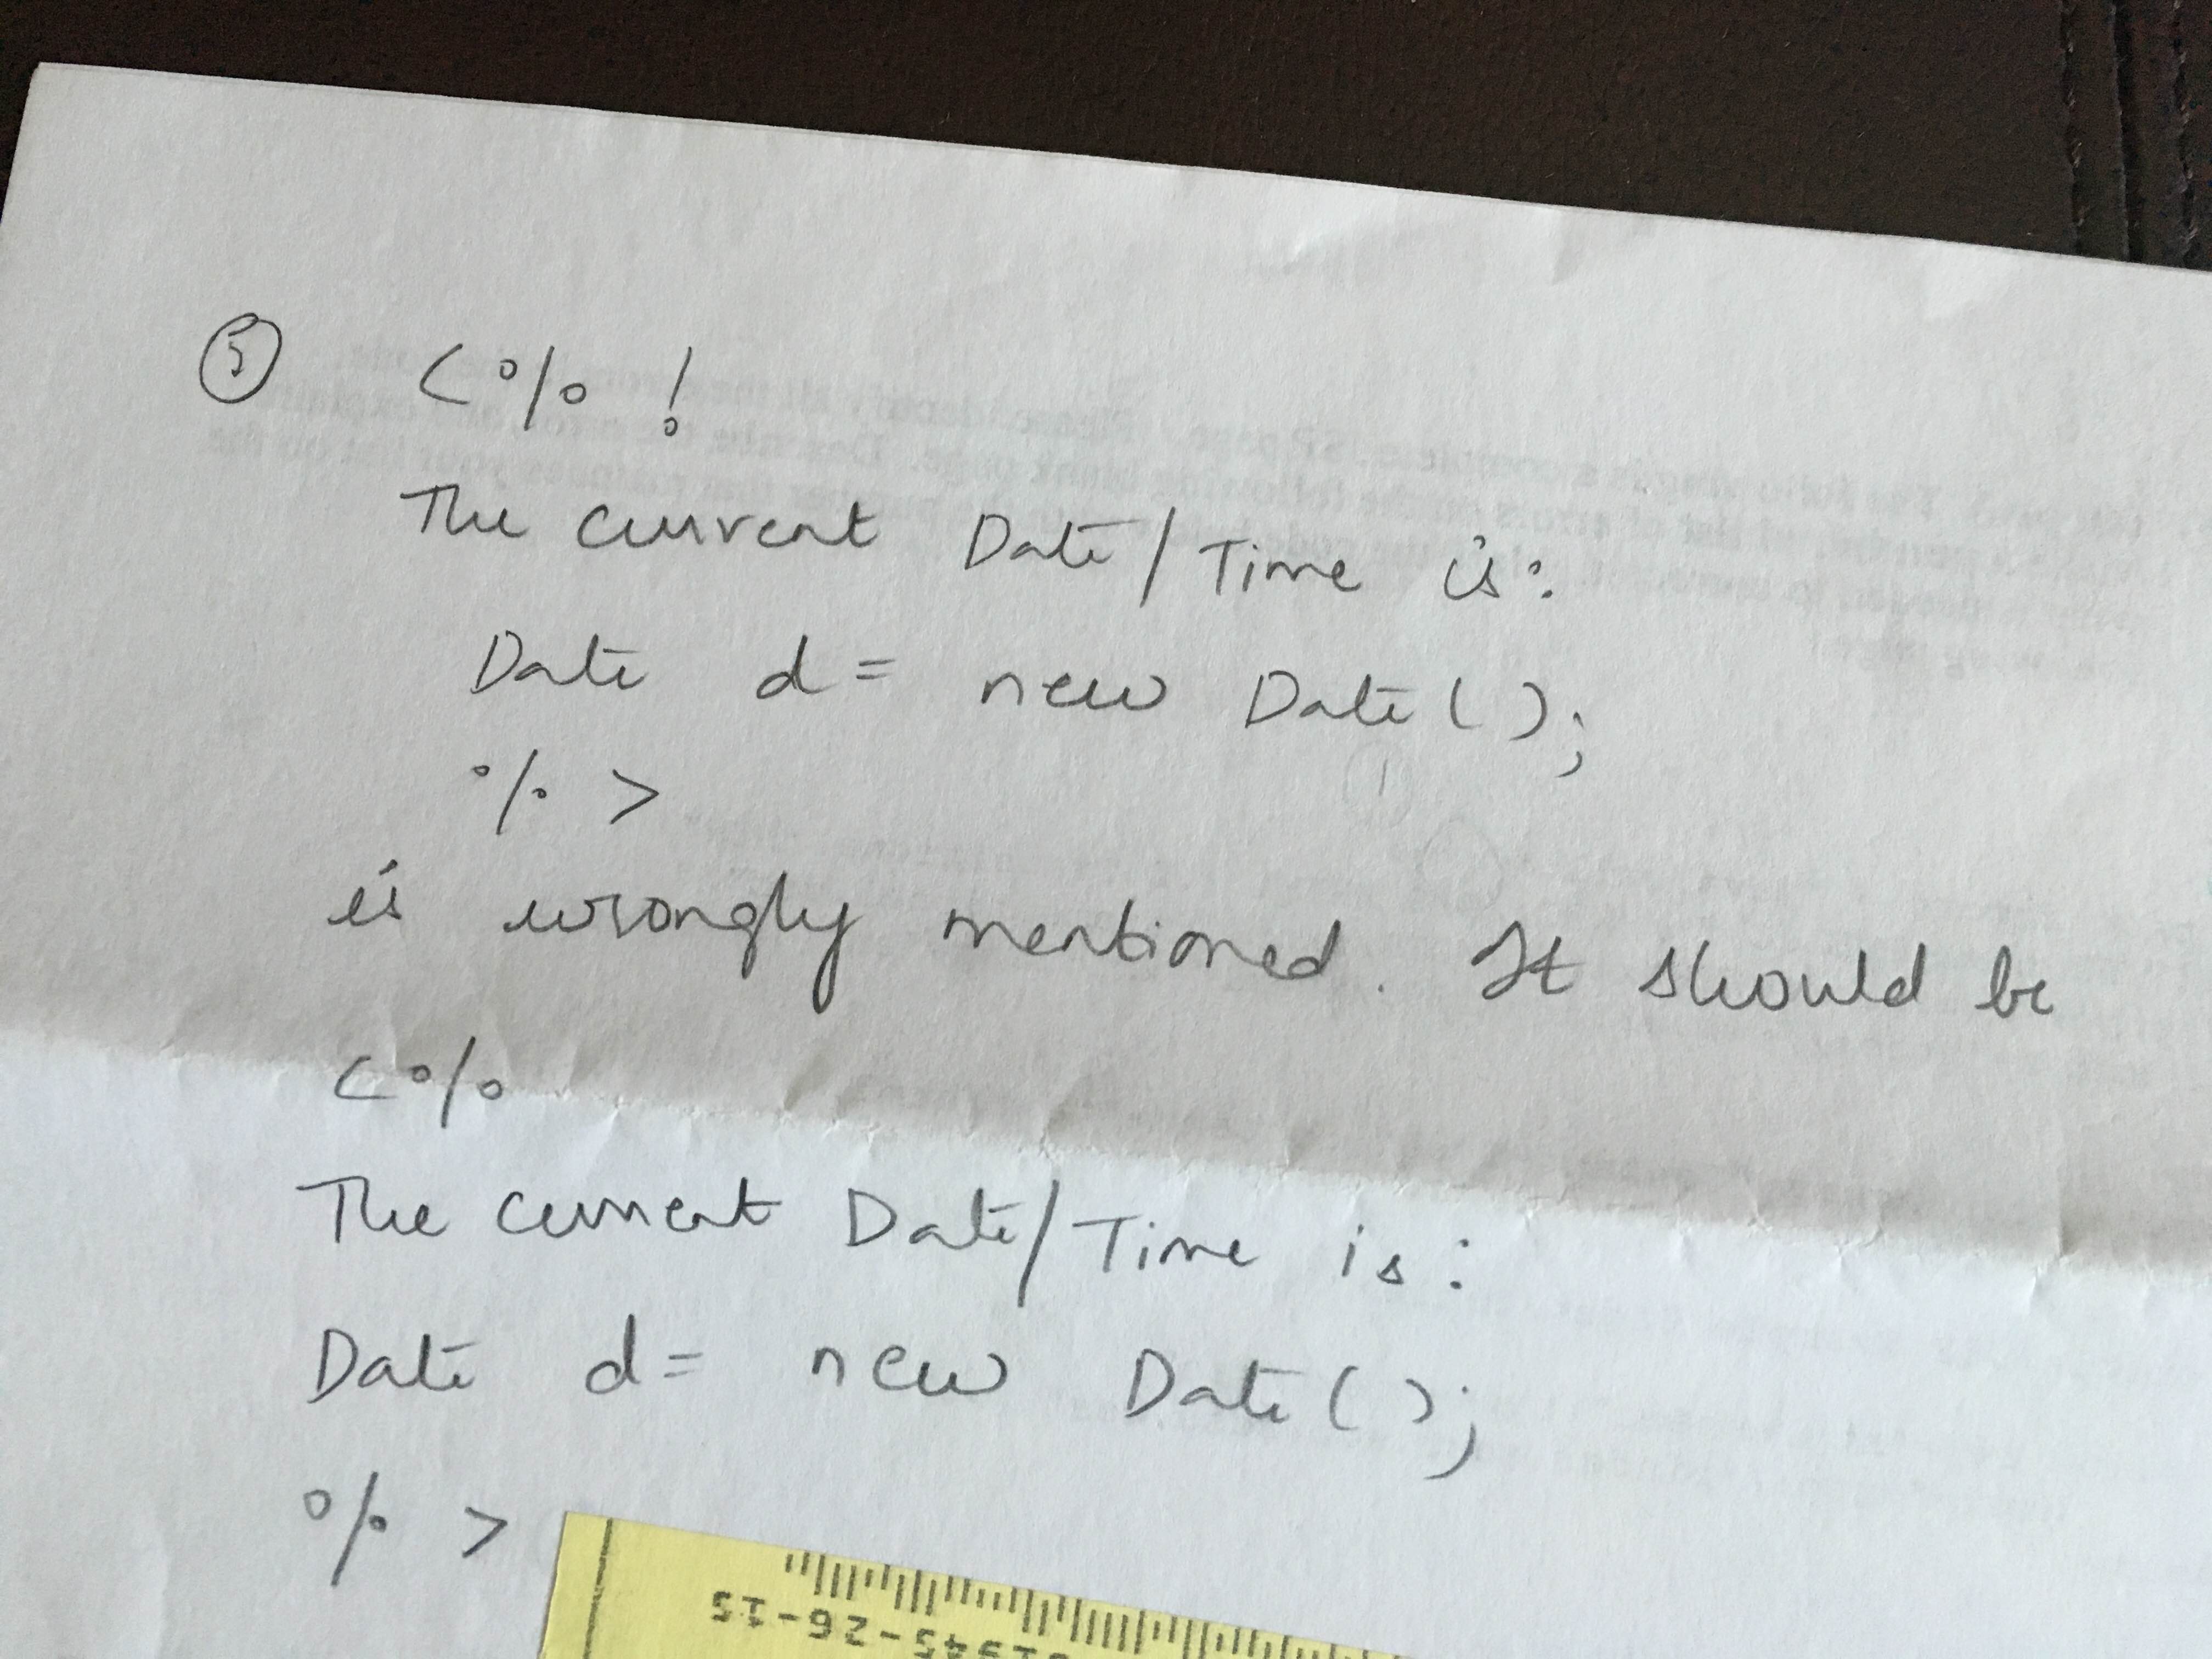 5 <%!
The current Date/Time is:
Date d = new Date();
%>
is wrongly mentioned. It should be
<%
The current Date/Time is:
Date d = new Date();
%>